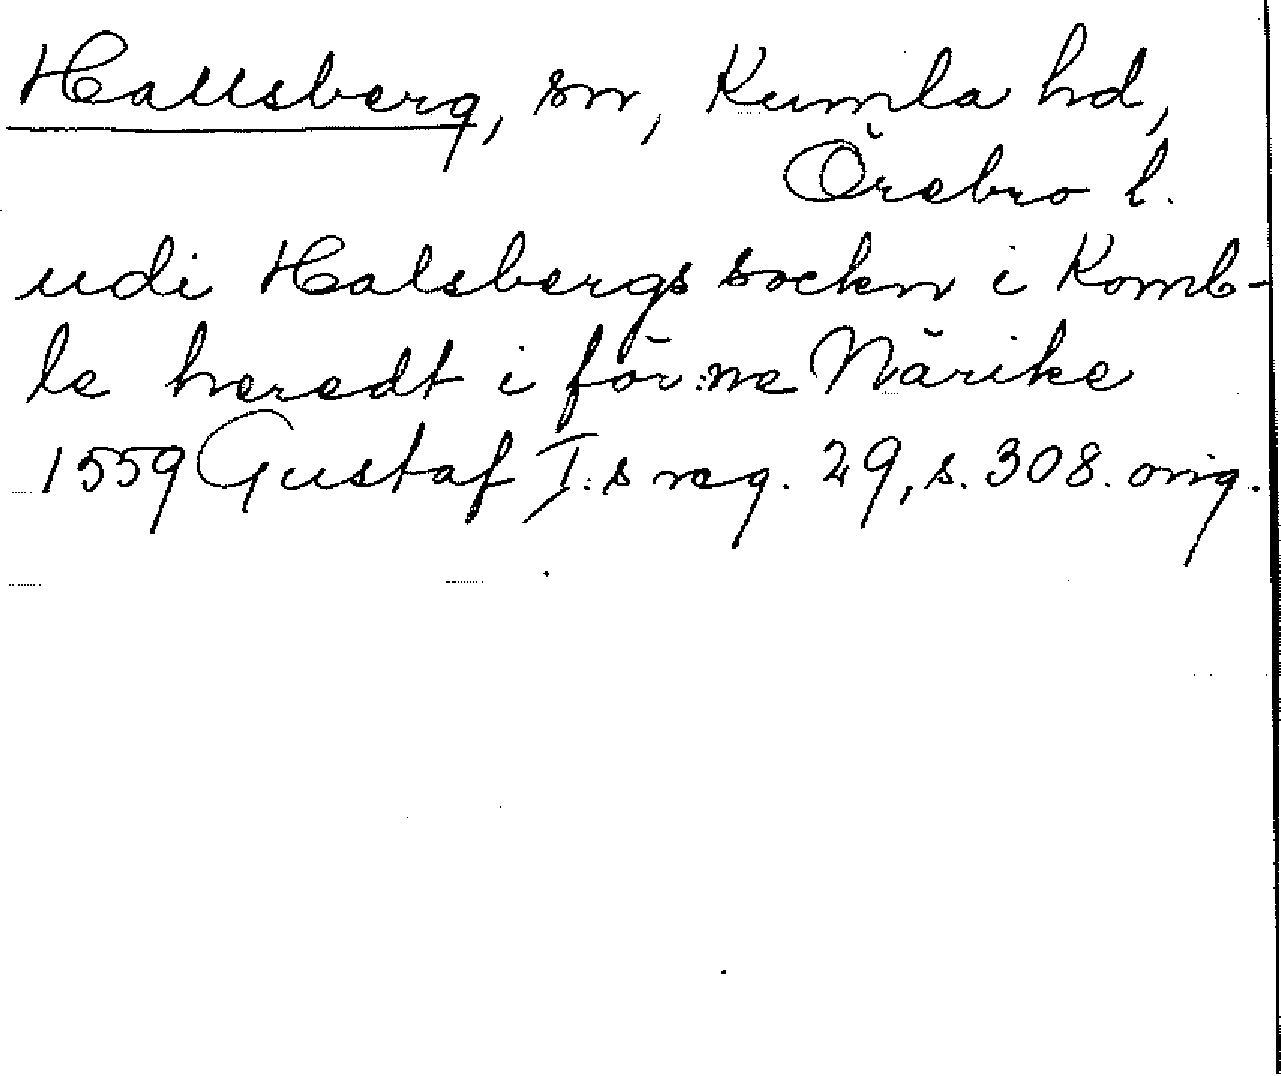 Hallsberg, sn, Kumla hd,
Örebro l.
udi Halsbergs sockn i Komb-
le heredt i för:ne Närike
1559 Gustaf I:s reg. 29, s. 308. orig.